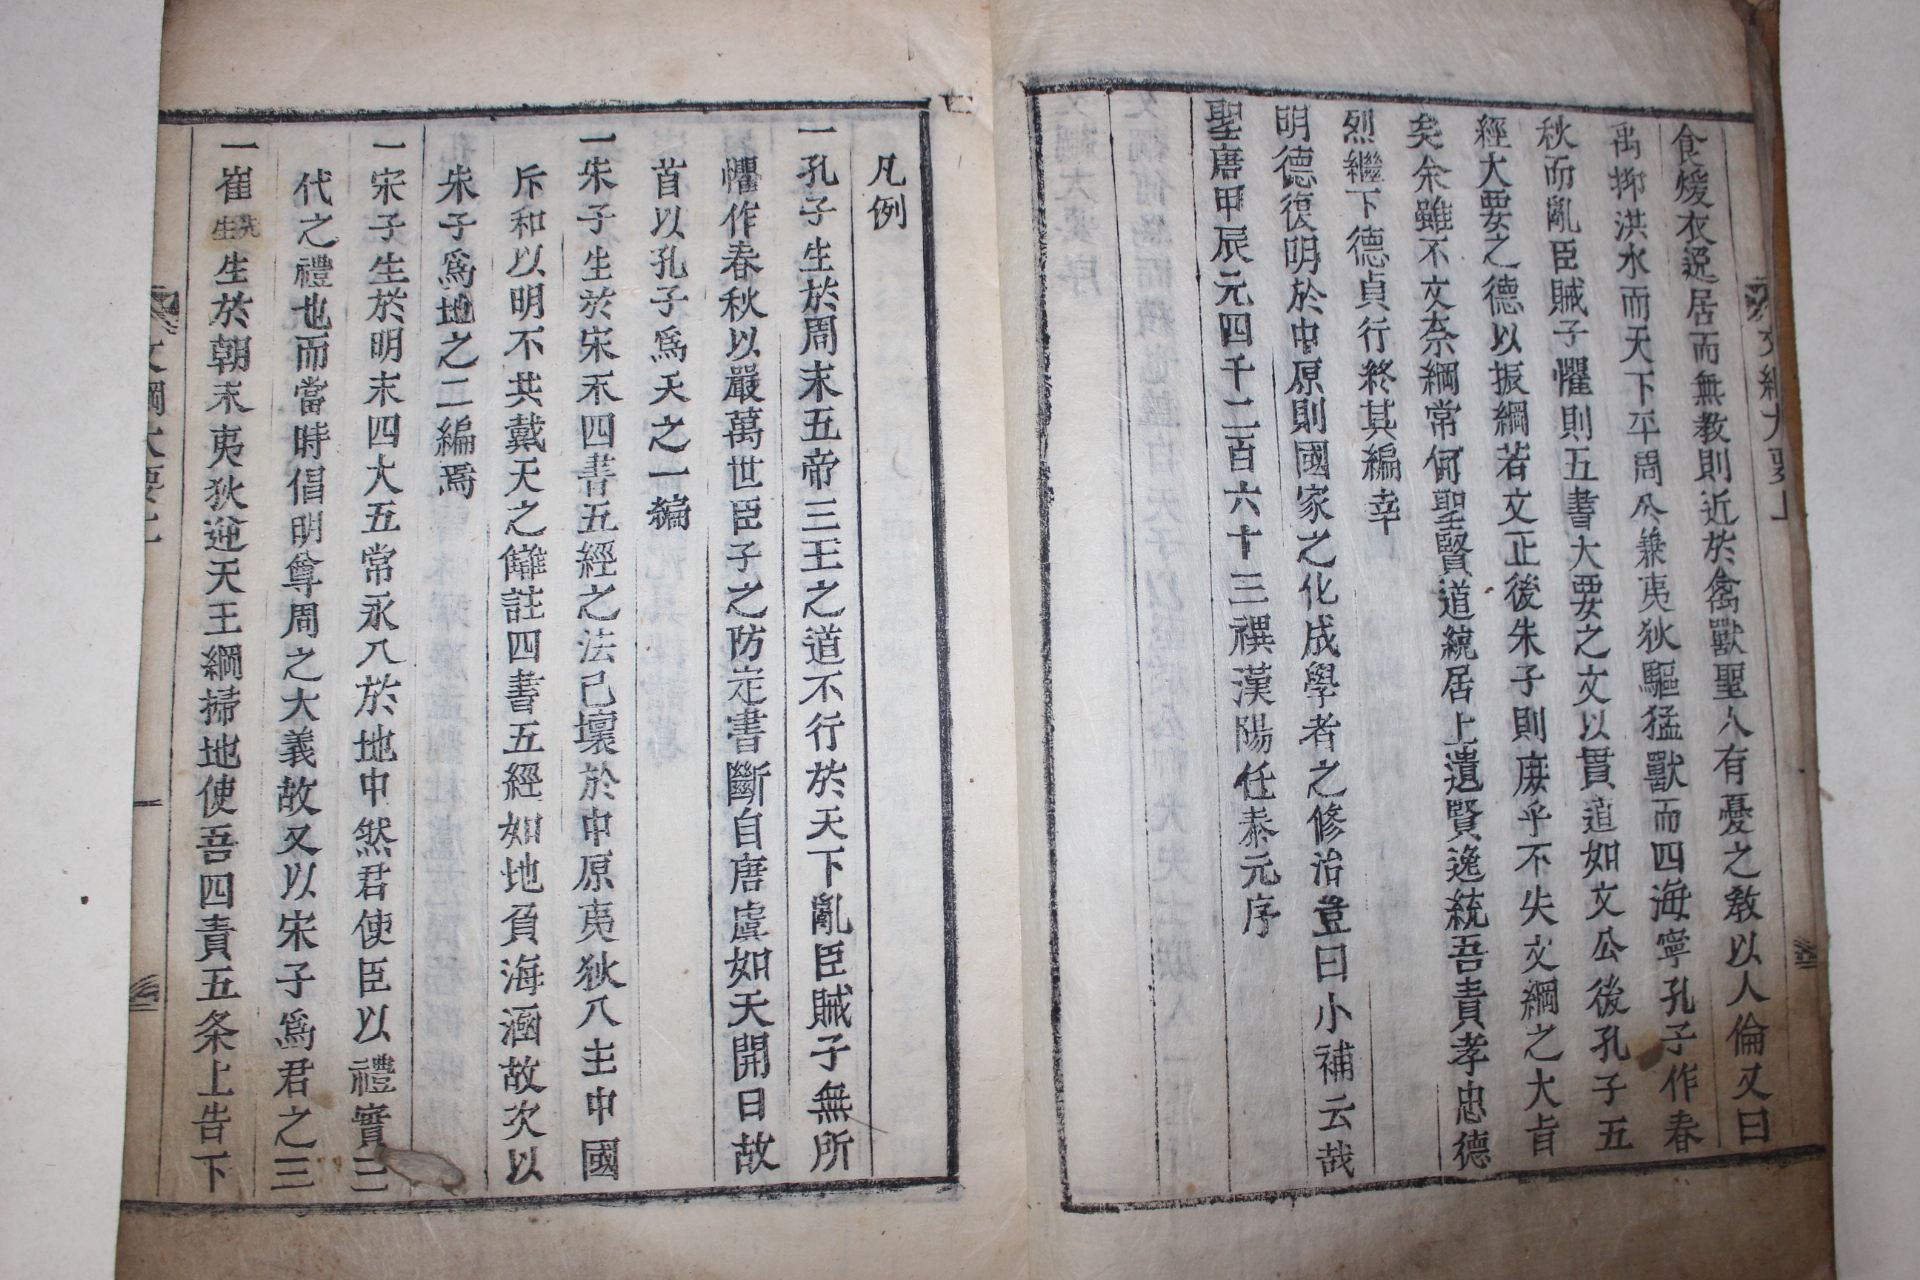 食煖衣逸居而無教則近於禽獸聖人有憂之教以人倫又曰
禹抑洪水而天下平周公兼夷狄驅猛獸而四海寧孔子作春
秋而亂臣賊子懼則五書大要之文以貫道如文公後孔子五
經大要之德以振綱若文正後朱子則庶乎不失文綱之大旨
矣余雖不文奈綱常何聖賢道統居上遺賢逸統吾責孝忠德
烈繼下德貞行終其編幸
明德復明於中原則國家之化成學者之修治豈曰小補云哉
聖唐甲辰元四千二百六十三禩漢陽任泰元序
文綱大要上
凡例
一孔子生於周末五帝三王之道不行於天下亂臣賊子無所
懼作春秋以嚴萬世臣子之防定書斷自唐虞如天開日故
首以孔子爲天之一編
一朱子生於宋末四書五經之法已壞於中原夷狄入主中國
斥和以明不共戴天之讎註四書五經如地負海涵故次以
朱子爲地之二編焉
一宋子生於明末四大五常永入於地中然君使臣以禮實三
代之禮也而當時倡明尊周之大義故又以宋子爲君之三
一崔先生生於朝末夷狄迎天王綱掃地使吾四責五条上告下
文綱大要上
一